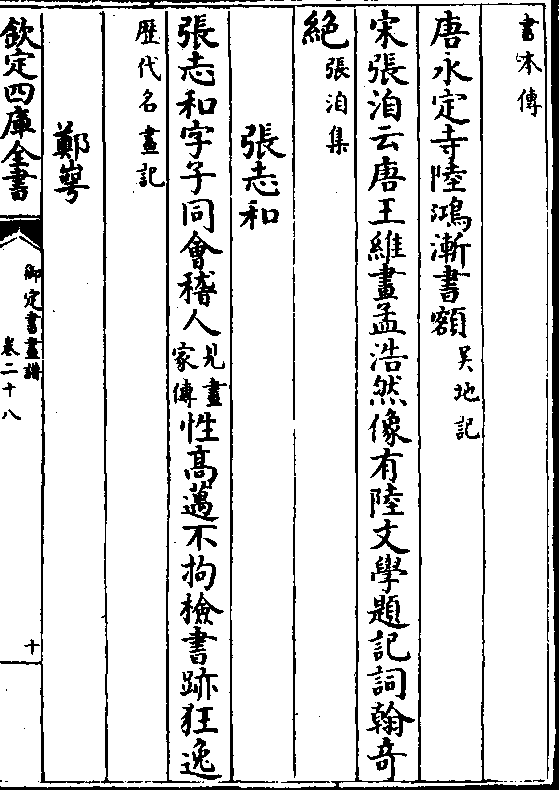 書本傳
唐永定寺陸鴻漸書額吳地記
宋張洎云唐王維畫孟浩然像有陸文學題記詞翰奇
絕張洎集
張志和
張志和字子同會稽人見畫家傳性高邁不拘檢書跡狂逸
歷代名畫記
鄭㝧
欽定四庫全書
御定書畫譜
卷二十八
十